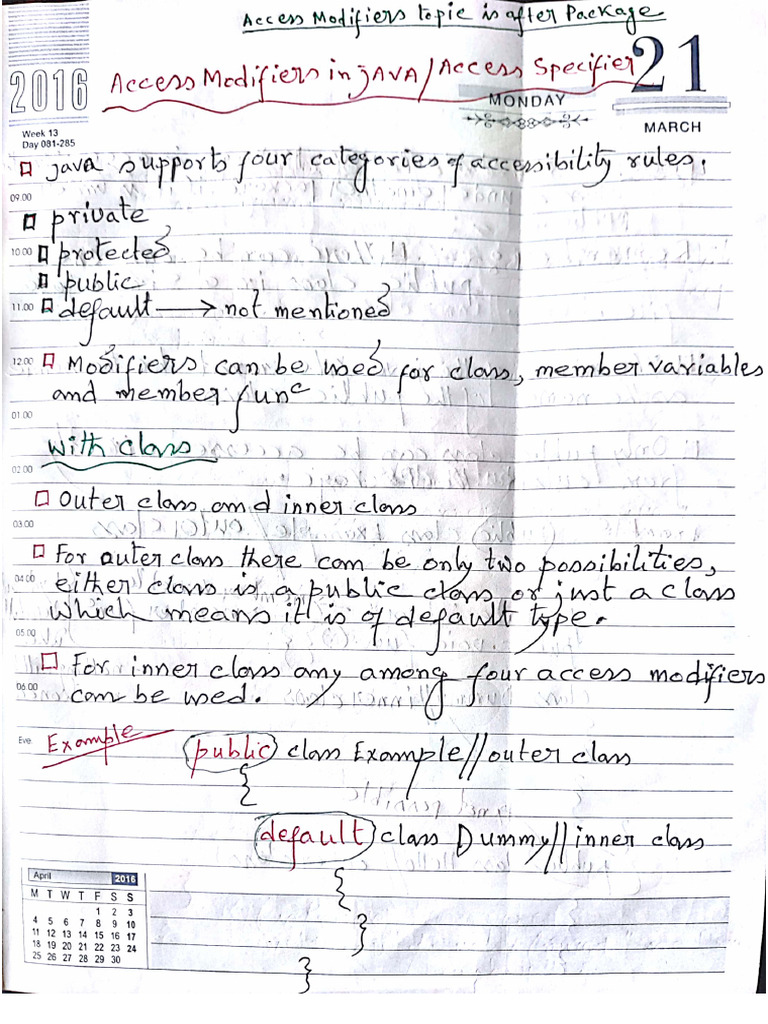 Access Modifiers topic is after Package
2016
Access Modifiers in JAVA/Access Specifier
21
MONDAY
MARCH
Week 13
Day 081-285
java supports four categories of accessibility rules.
09.00
private
10.00 protected
public
11.00 default → not mentioned
12.00 Modifiers can be used for class, member variables
and member func
01.00
With class
02.00
Outer class and inner class
03.00
For outer class there can be only two possibilities,
04.00 either class is a public class or just a class
which means it is of default type.
05.00
For inner class any among four access modifiers
06.00 can be used.
Eve Example public class Example//outer class
{
default class Dummy//inner class
{
}
}
April 2016
M T W T F S S
1 2 3
4 5 6 7 8 9 10
11 12 13 14 15 16 17
18 19 20 21 22 23 24
25 26 27 28 29 30